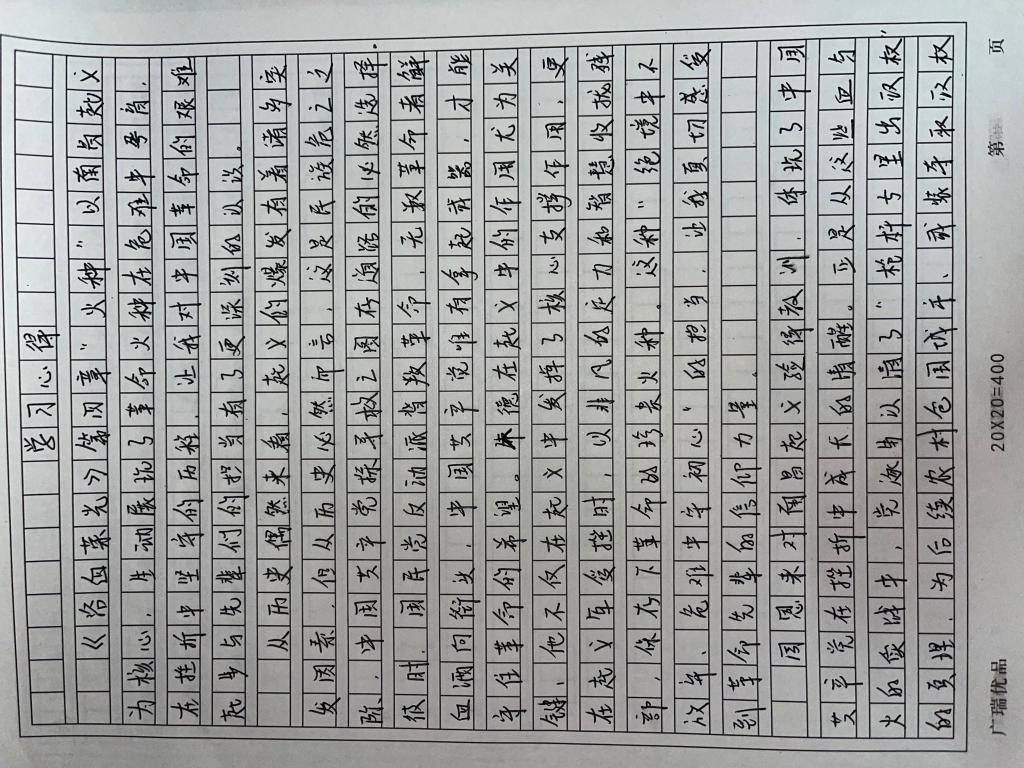 学习心得
《浴血荣光》第四章"火种"以南昌起义
为核心,生动展现了革命火种在危难中孕育,
在挫折中坚守的历程,让我对中国革命的艰难
起步与先辈们的担当有了更深刻的认识。
从历史偶然来看,起义的爆发有着诸多突
发因素,但从历史必然而言,这是民族危亡之
际,中国共产党探寻救亡图存道路的必然选择。
彼时,国民党反动派背叛革命,无数革命者鲜
血洒向街头,中国共产党唯有拿起武器,才能
守住革命的希望。朱德在起义中的作用尤为关
键,他不仅在起义中发挥了核心支撑作用,更
在起义军受挫时,以非凡的定力和智慧收拢残
部,保存下革命的珍贵火种。这种"绝境中不
放弃、危难中守初心"的担当,让我真切感受
到革命先辈的信仰力量。
周恩来对南昌起义经得教训,体现了中国
共产党在挫折中成长的清醒。正是从这些血与
火的实战中,党认清了"枪杆子里出政权"
的真理,为后续农村包围城市、武装夺取政权
广瑞优品 20X20=400 第 页